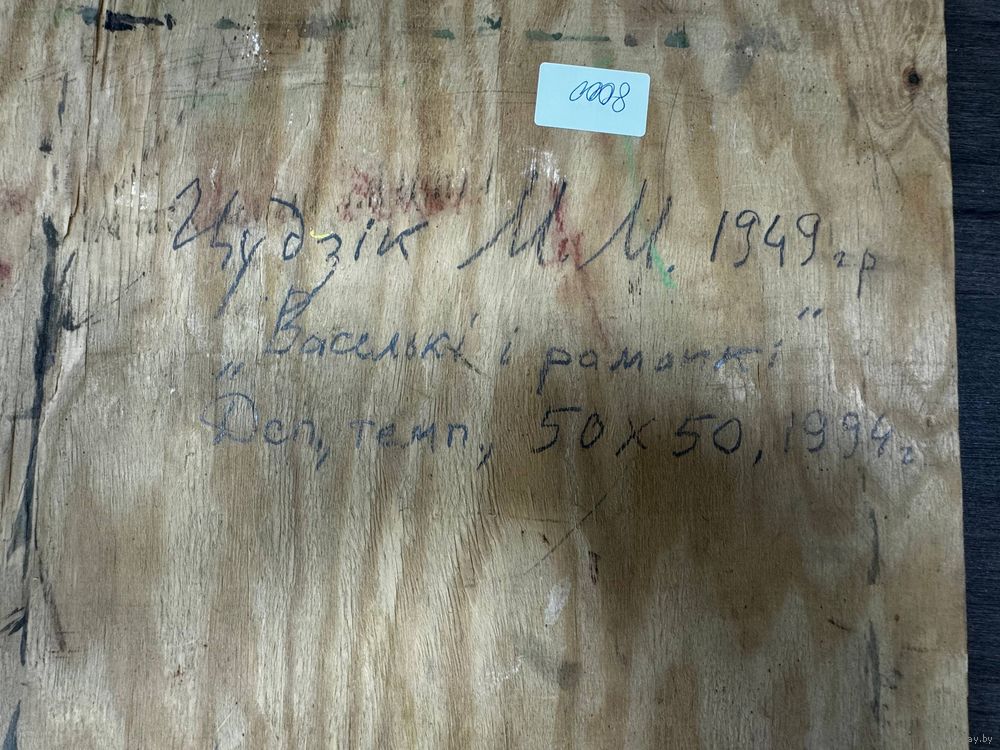 0008
Цудзік М. М. 1949 гр
„Васелькі і рамонкі"
Дсп, темп., 50 х 50, 1994г
ay.by